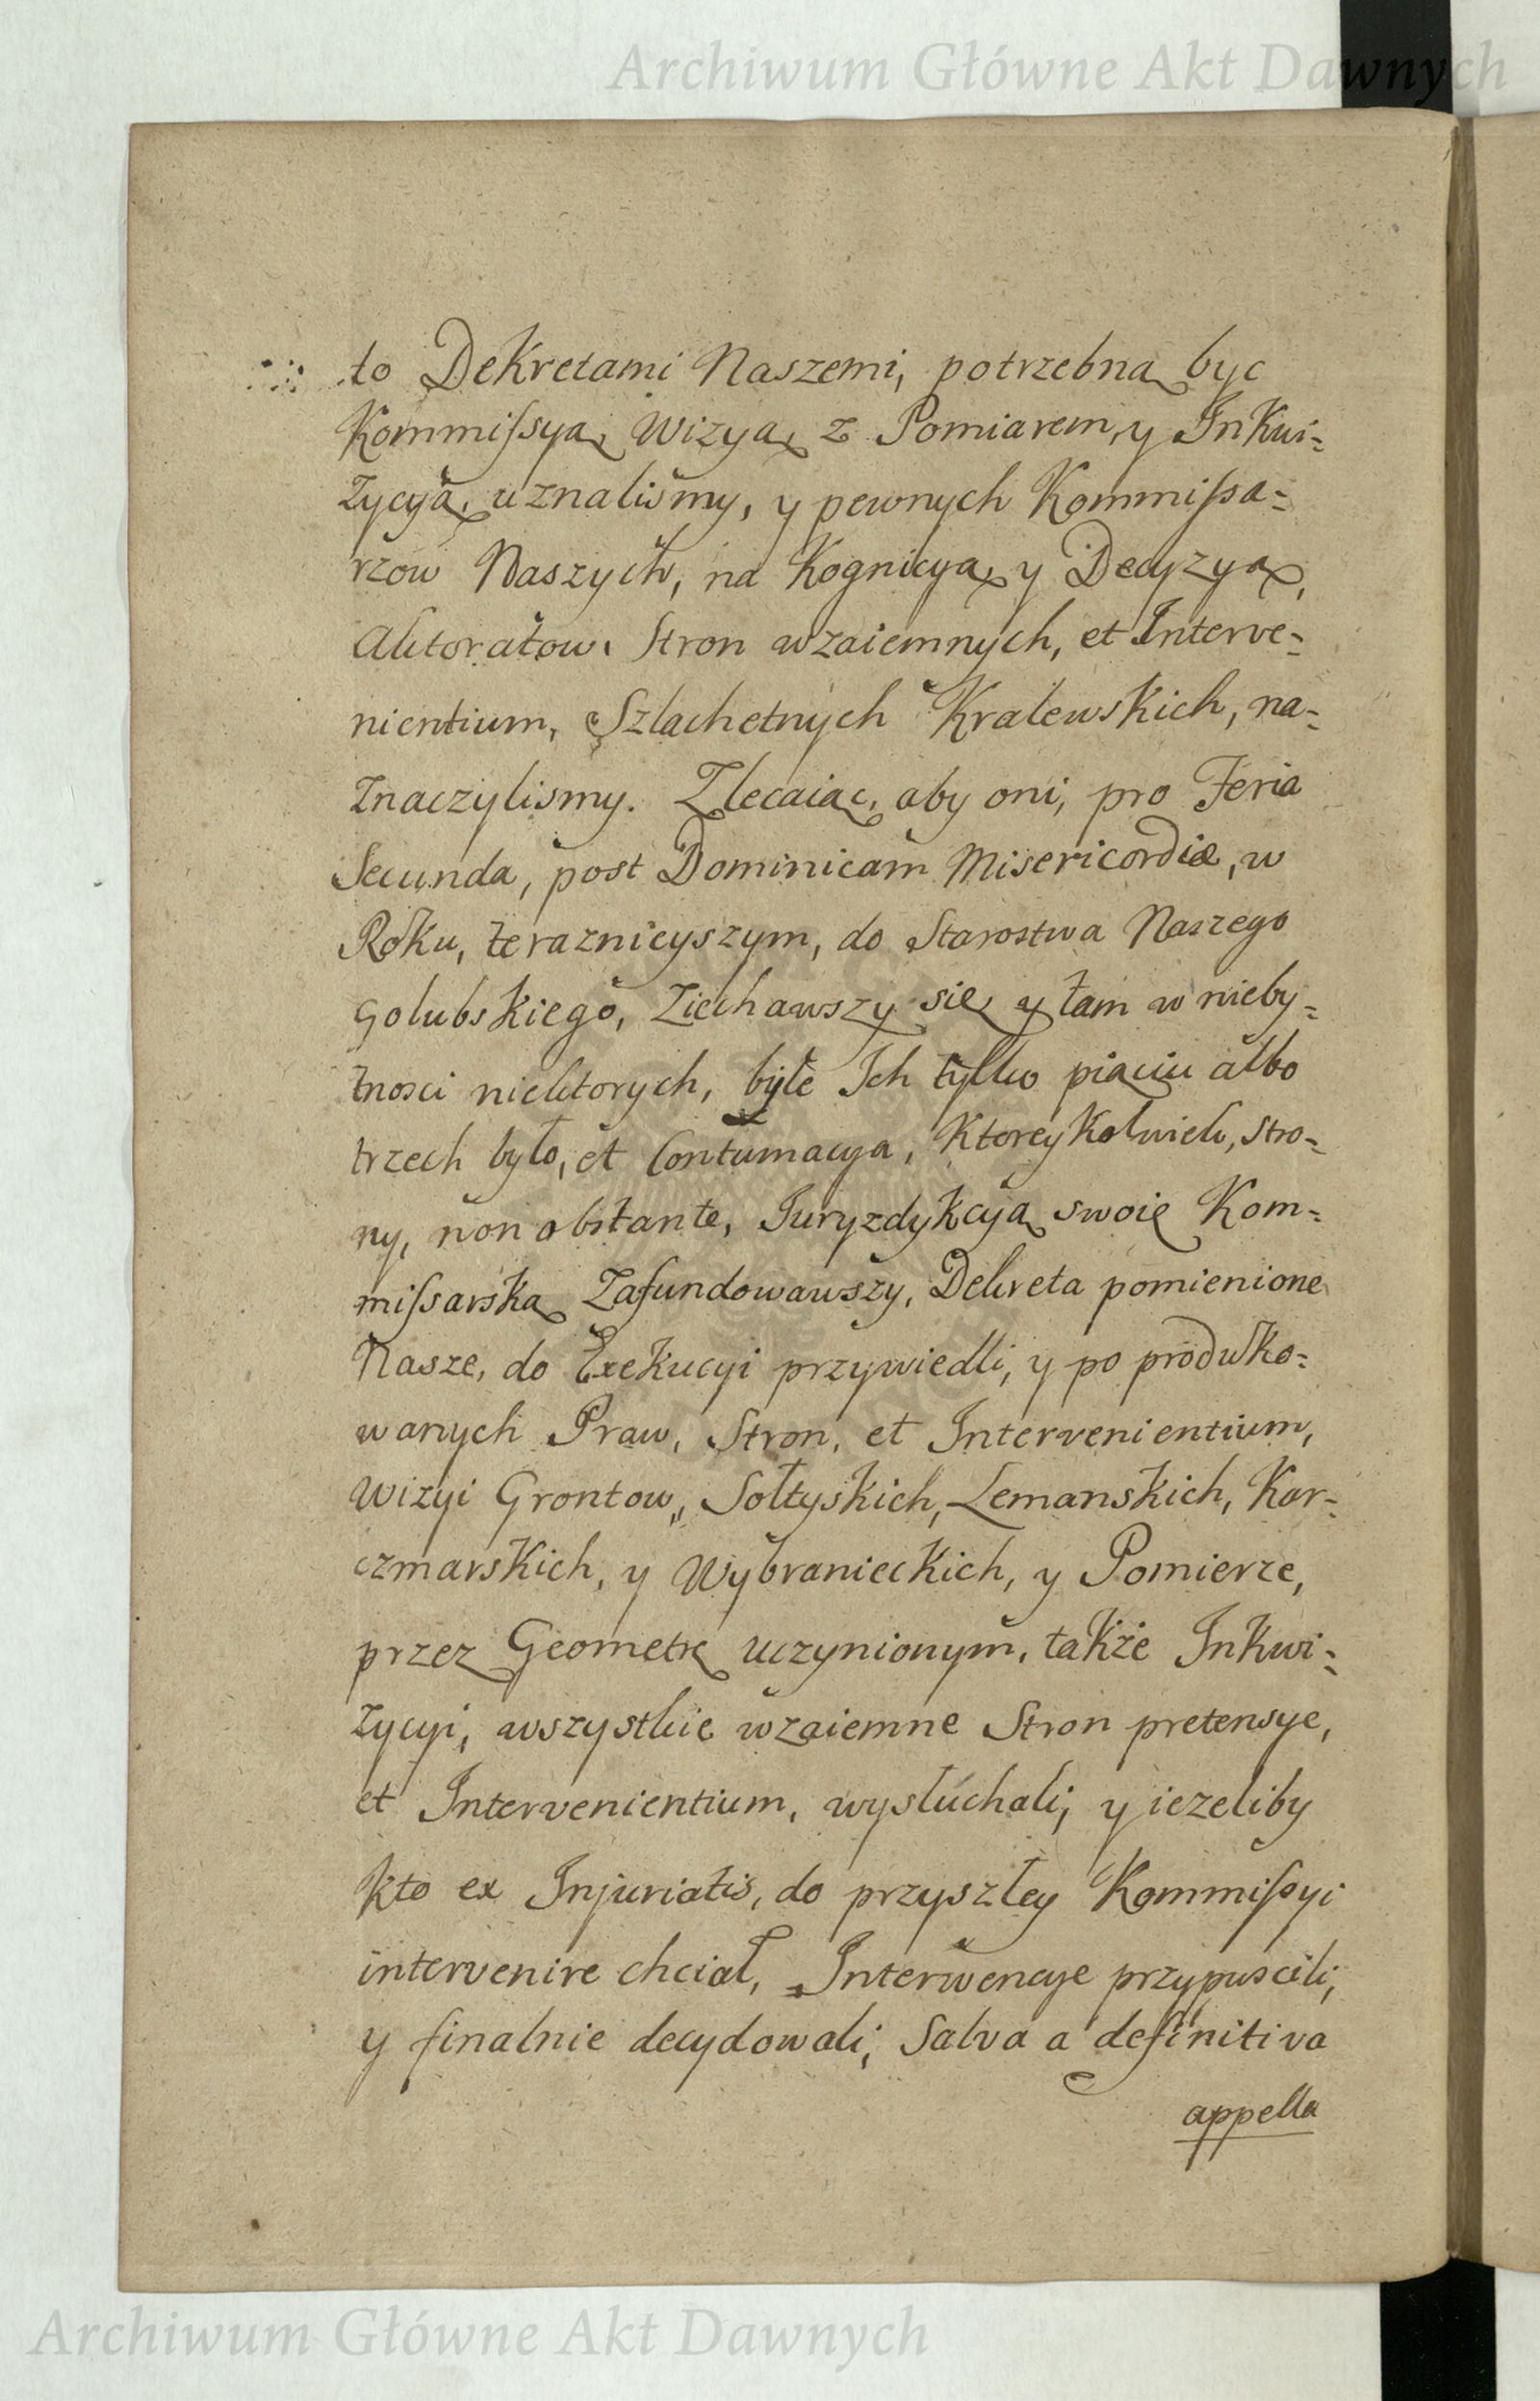 Archiwum Główne Akt Dawnych
to Dekretami Naszemi, potrzebną byc
Kommiſsyą, Wizyą, z Pomiarem, y Inkwi=
zycyą, uznalismy, y pewnych Kommiſsa=
rzow Naszych, na Kognicyą, y Decyzyą,
Aktoratow, Stron wzaiemnych, et Interve=
nientium, Szlachetnych Kralewskich, na=
znaczylismy. Zlecaiąc, aby oni, pro Feria
Secunda, post Dominicam Misericordiæ, w
Roku, teraznieyszym, do Starostwa Naszego
Golubskiego, ziechawszy się y tam w nieby=
tnosci niektorych, byle Ich tylko piąciu albo
trzech było, et Contumacya, Ktoreykolwiek, Stro=
ny, non obstante, Juryzdykcyą swoię Kom=
miſsarską Zafundowawszy, Dekreta pomienione
Nasze, do Exekucyi przywiedli, y po produko=
wanych Praw, Stron, et Intervenientium,
Wizyi Grontow, Sołtyskich, Lemanskich, Kar=
czmarskich, y Wybranieckich, y Pomierze,
przez Geometrę uczynionym, także Inkwi=
zycyi, wszystkie wzaiemne Stron pretensye,
et Intervenientium, wysłuchali, y iezeliby
kto ex Injuriatis, do przyszłey Kommiſsyi
intervenire chciał, Interwencye przypuscili,
y finalnie decydowali, Salva a definitiva
appella
Archiwum Główne Akt Dawnych